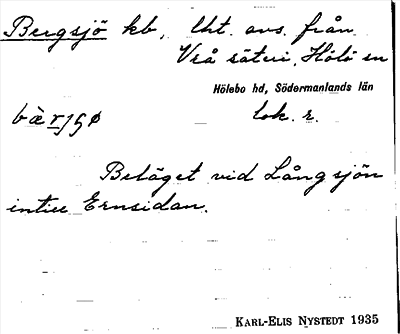 Bergsjö kb, lht. avs. från
Vrå säteri, Hölö sn
Hölebo hd, Södermanlands län
bὰrjʃø lok. r.
Beläget vid Långsjön
intill Ernsidan.
KARL-ELIS NYSTEDT 1935